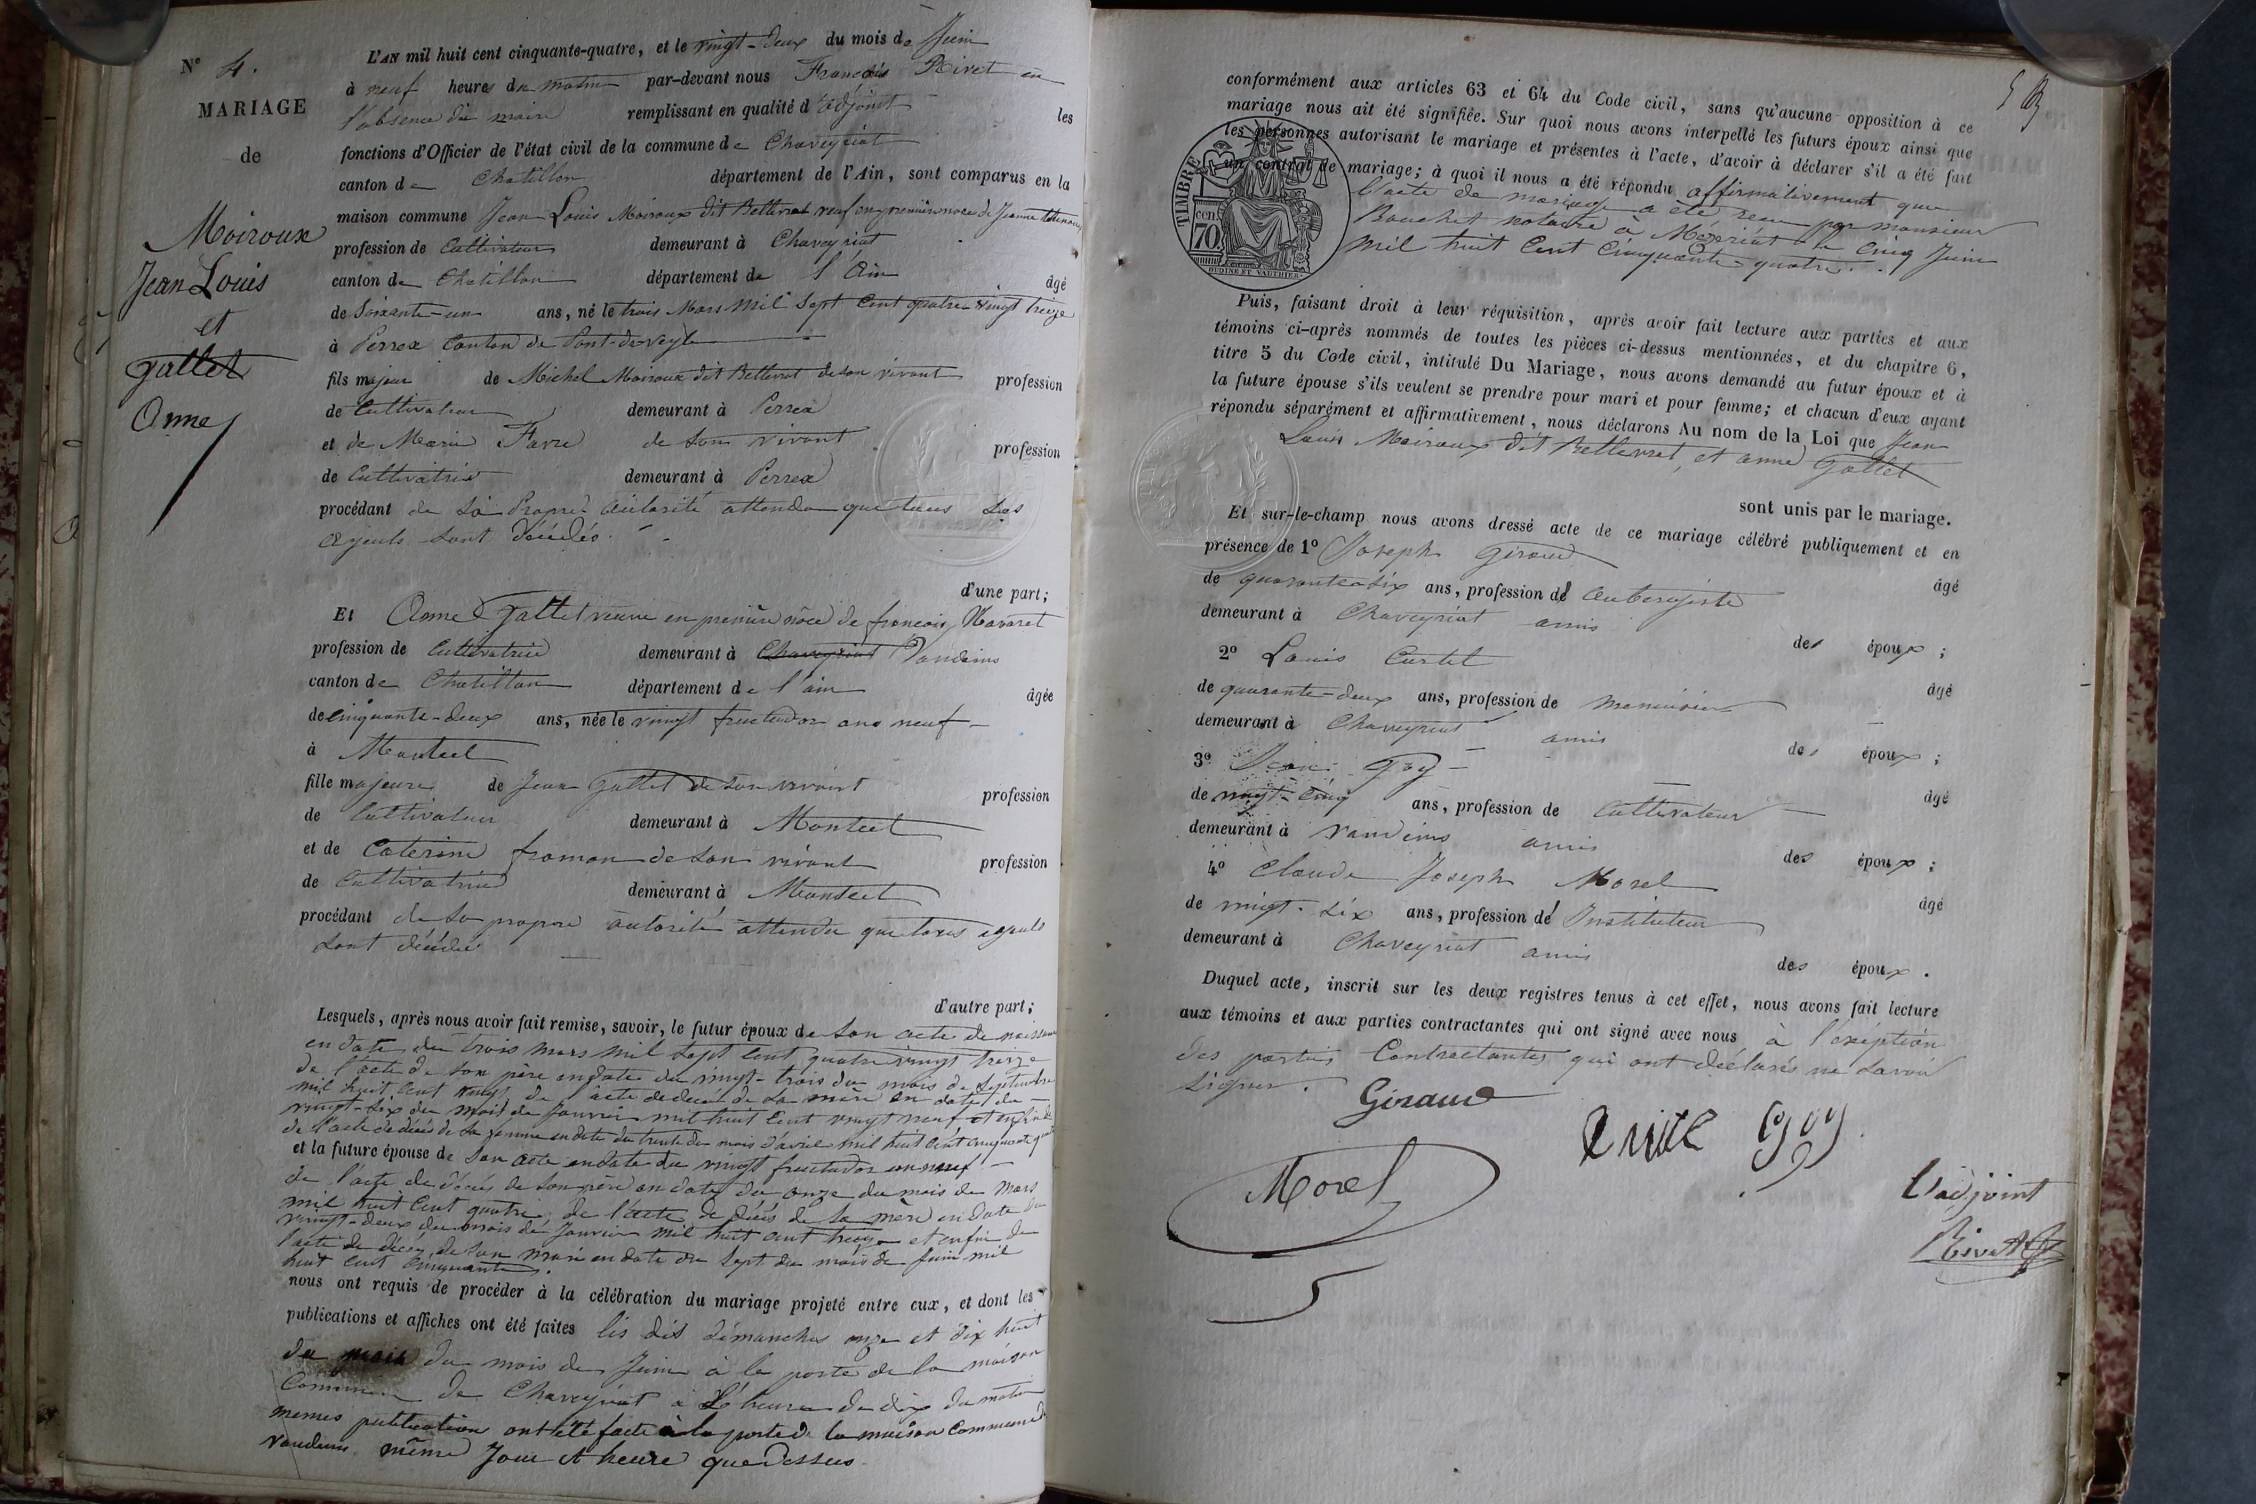 N° 4.
MARIAGE
de
Moiroux
Jean Louis
et
Gallet
Anne
L'AN mil huit cent cinquante-quatre, et le vingt-deux du mois de Juin
à neuf heures du matin par-devant nous François Rivet en
l'absence du maire remplissant en qualité d'adjoint les
fonctions d'Officier de l'état civil de la commune de Chaveyriat
canton de Chatillon département de l'Ain, sont comparus en la
maison commune Jean Louis Moiroux dit Bellevret veuf en première noce de Jeanne
profession de Cultivateur demeurant à Chaveyriat
canton de Chatillon département de l'Ain âgé
de Soixante-un ans, né le trois Mars mil Sept Cent quatre vingt treize
à Perrex Canton de Pont-de-veyle
fils majeur de Michel Moiroux dit Bellevret de son vivant profession
de Cultivateur demeurant à Perrex
et de Marie Favre de son vivant profession
de Cultivatrice demeurant à Perrex
procédant de Sa Propre autorité attendu que tous Ses
ayeuls sont décédés.
d'une part;
Et Anne Gallet veuve en première noce de françois Navaret
profession de Cultivatrice demeurant à Chaveyriat Vandeins
canton de Chatillon département de l'ain âgée
de cinquante-deux ans, née le vingt fructidor ans neuf
à Montcet
fille majeure de Jean Gallet de son vivant profession
de Cultivateur demeurant à Montcet
et de Caterine froman de son vivant profession
de Cultivatrice demeurant à Montcet
procédant de Sa propre autorité attendu que tous ayeuls
sont décédés
d'autre part;
Lesquels, après nous avoir fait remise, savoir, le futur époux de Son acte de naissance
en date du trois mars mil sept cent quatre vingt treize
de l'acte de son père en date du vingt-trois du mois de Septembre
mil huit cent vingt de l'acte de décès de sa mère en date du
vingt-six du mois de Janvier mil huit cent vingt neuf et enfin
de l'acte de décès de Sa femme en date du trente du mois d'avril mil huit cent cinquante
et la future épouse de Son acte en date du vingt fructidor an neuf
de l'acte de décès de Son père en date du onze du mois de Mars
mil huit cent quatre de l'acte de décès de Sa mère en date du
vingt-deux du mois de Janvier mil huit cent treize et enfin de
l'acte de décès de Son mari en date du Sept du mois de Juin mil
huit cent cinquante.
nous ont requis de procéder à la célébration du mariage projeté entre eux, et dont les
publications et affiches ont été faites les dis démanches onze et dix huit
du mois du mois de Juin à la porte de la maison
Commune de Chaveyriat à l'heure de dix du matin
memes publication ont été faite à la porte de la maison Commune de
vandeins même Jour et heure que dessus
conformément aux articles 63 et 64 du Code civil, sans qu'aucune opposition à ce
mariage nous ait été signifiée. Sur quoi nous avons interpellé les futurs époux ainsi que
les personnes autorisant le mariage et présentes à l'acte, d'avoir à déclarer s'il a été fait
un contrat de mariage; à quoi il nous a été répondu affirmativement que
l'acte de mariage a été recu par monsieur
Bouchet notaire à Mézériat le Cinq Juin
mil huit Cent Cinquante-quatre.
TIMBRE
cen
70
OUDINÉ ET VAUTHIER
Puis, faisant droit à leur réquisition, après avoir fait lecture aux parties et aux
témoins ci-après nommés de toutes les pièces ci-dessus mentionnées, et du chapitre 6,
titre 5 du Code civil, intitulé Du Mariage, nous avons demandé au futur époux et à
la future épouse s'ils veulent se prendre pour mari et pour femme; et chacun d'eux ayant
répondu séparément et affirmativement, nous déclarons Au nom de la Loi que Jean
Louis Moiroux dit Bellevret, et anne Gallet
sont unis par le mariage.
Et sur-le-champ nous avons dressé acte de ce mariage célébré publiquement et en
présence de 1° Joseph Giraud âgé
de quarante-six ans, profession d'Aubergiste
demeurant à Chaveyriat amis des époux;
2° Louis Curtil âgé
de quarante-deux ans, profession de menuisier
demeurant à Chaveyriat amis des époux;
3° Jean Goy âgé
de vingt-cinq ans, profession de Cultivateur
demeurant à vandeins amis des époux;
4° Claude Joseph Morel âgé
de vingt-six ans, profession d'Instituteur
demeurant à Chaveyriat amis des époux.
Duquel acte, inscrit sur les deux registres tenus à cet effet, nous avons fait lecture
aux témoins et aux parties contractantes qui ont signé avec nous à l'exéption
des parties Contractantes qui ont déclarés ne Savoir
Signer.
Giraud
goy
Morel
L'adjoint
Rivet